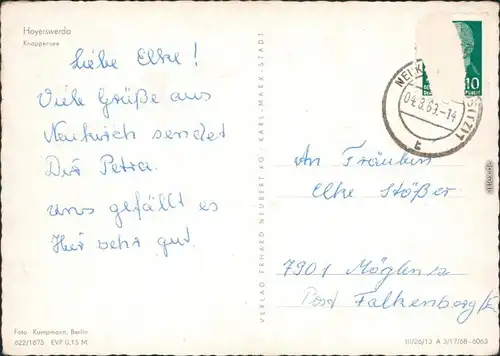 Hoyerswerda
Knappensee
Liebe Elke!
Viele Grüße aus
Neukirch sendet
Dir Petra.
uns gefällt es
Hier sehr gut.
Foto Kampmann, Berlin
622/1675 EVP 0,15 M
VERLAG ERHARD NEUBERT KG · KARL-MARX-STADT
10
04.8.69.-14
t
An Fräulein
Elke Stößer
7901 Möglenz
Post Falkenberg/E
III/26/13 A 3/17/68-6063